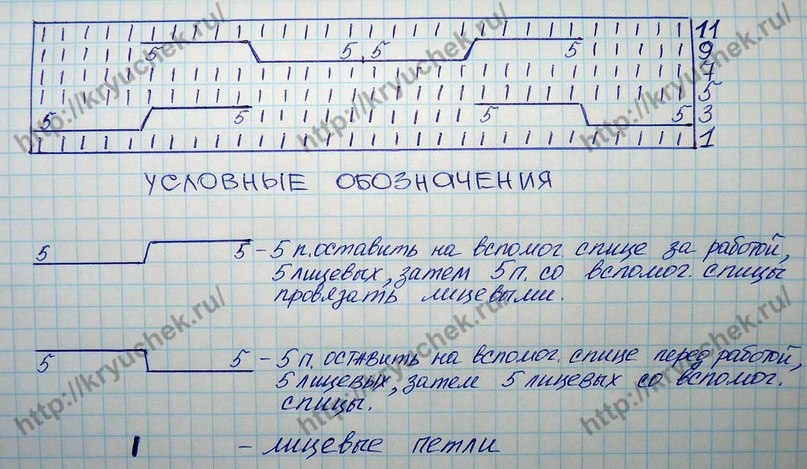 11
5 5 5 5 9
7
5
5 5 5 5 3
1
УСЛОВНЫЕ ОБОЗНАЧЕНИЯ
5 5 - 5 п. оставить на вспомог. спице за работой,
5 лицевых, затем 5 п. со вспомог. спицы
провязать лицевыми.
5 5 - 5 п. оставить на вспомог. спице перед работой,
5 лицевых, затем 5 лицевых со вспомог.
спицы.
| - лицевые петли
http://kryuchek.ru/
http://kryuchek.ru/
http://kryuchek.ru/
http://kryuchek.ru/
http://kryuchek.ru/
http://kryuchek.ru/